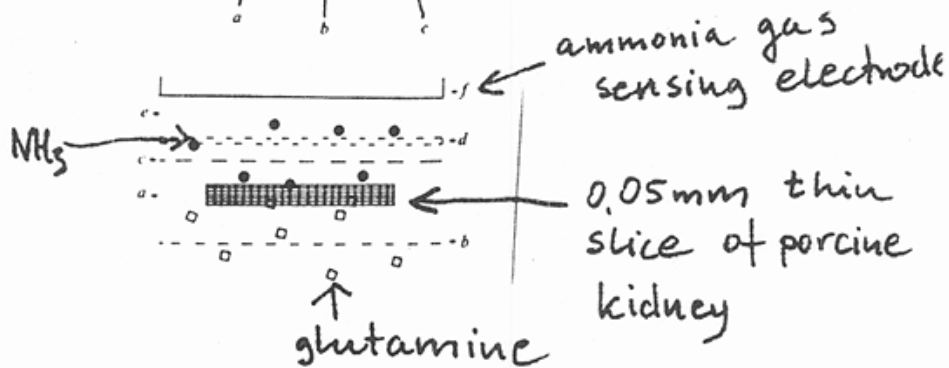 a
b
c
ammonia gas
sensing electrode
f
e
NH3
d
c
a
0.05mm thin
slice of porcine
kidney
b
glutamine